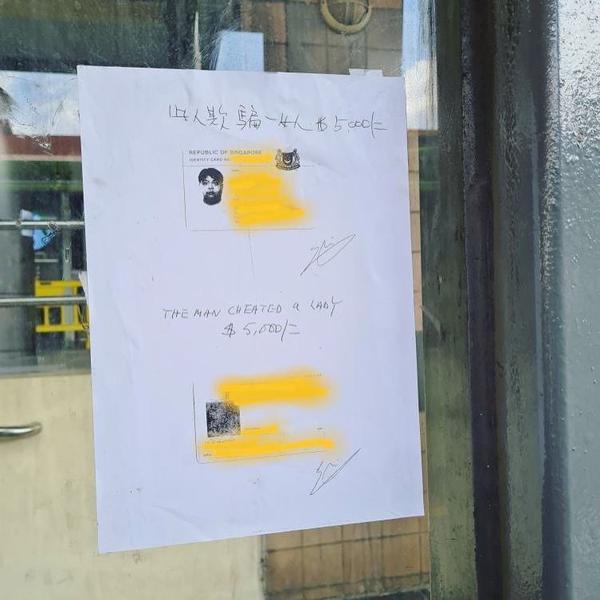 此人欺骗一女人 $5000/=
REPUBLIC OF SINGAPORE
IDENTITY CARD NO.
THE MAN CHEATED A LADY
$5,000/=